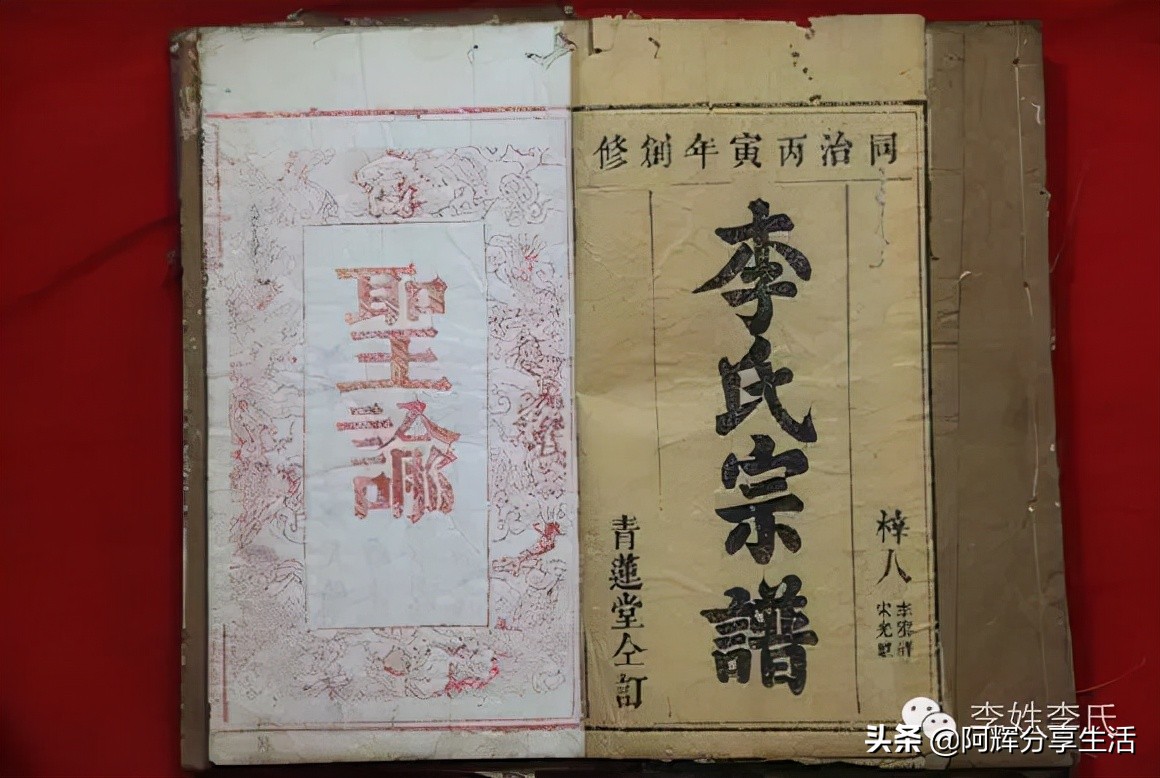 同治丙寅年創修
梓人
李氏宗譜
青蓮堂仝訂
聖諭
李姓李氏
头条 @阿辉分享生活